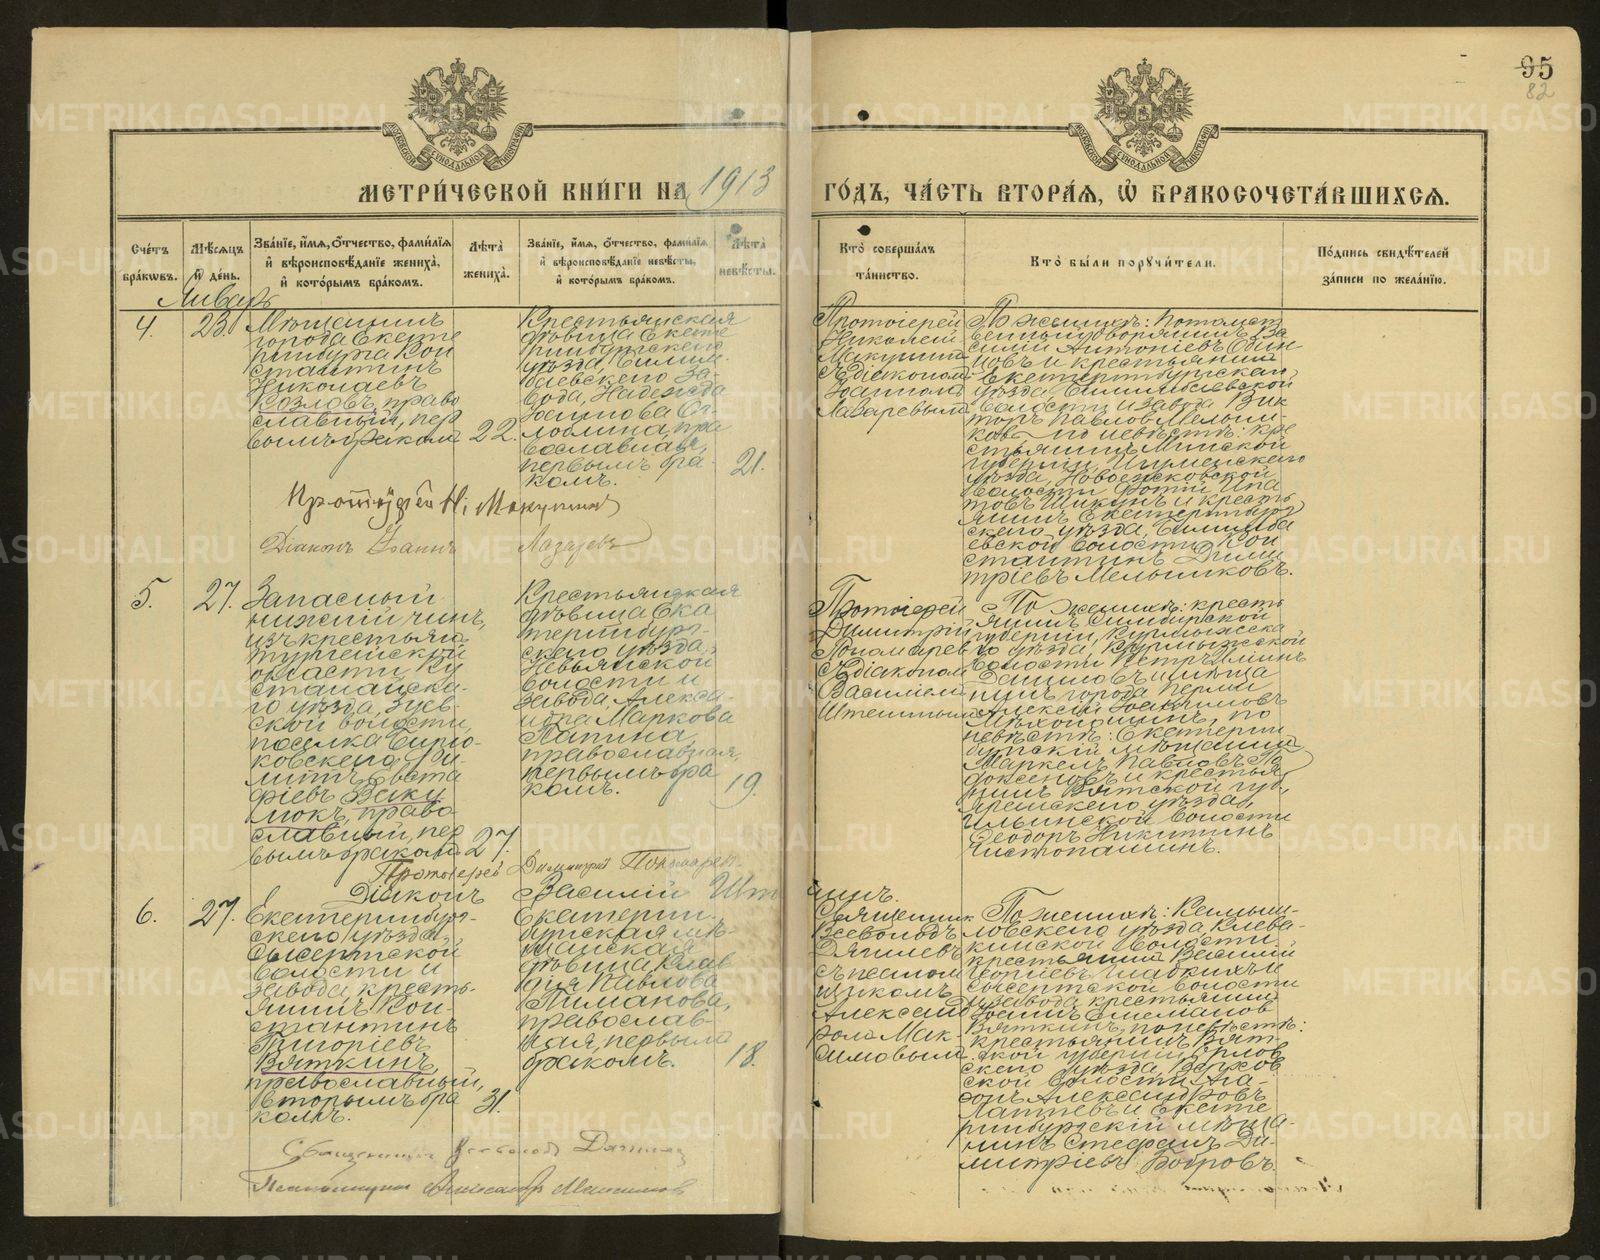 95
82
МЕТРИ́ЧЕСКОЙ КНИ́ГИ НА 1913 ГО́ДЪ, ЧА́СТЬ ВТОРА́Я, Ѡ҆ БРАКОСОЧЕТА́ВШИХСЯ.
Сче́тъ бра́кѡвъ.
Мѣ́сяцъ и҆ де́нь.
Зва́нїе, и҆́мя, ѻ҆́тчество, фами́лїя и҆ вѣроисповѣ́данїе жениха̀, и҆ кото́рымъ бра́комъ.
Лѣ́та̀ жениха̀.
Зва́нїе, и҆́мя, ѻ҆́тчество, фами́лїя и҆ вѣроисповѣ́данїе невѣ́сты, и҆ кото́рымъ бра́комъ.
Лѣ́та̀ невѣ́сты.
Кто̀ соверша́лъ та́инство.
Кто̀ бы́ли порꙋчи́тели.
По́дпись свидѣ́телей за́писи по жела́нїю.
Январь
4.
23.
Мѣщанинъ
города Екате
ринбурга Кон
стантинъ
Николаевъ
Козловъ, право
славный, пер
вымъ бракомъ
22.
Крестьянская
дѣвица Екате
ринбургскаго
уѣзда, Билим-
баевскаго За-
вода, Надежда
Іоаннова
православная,
первымъ бра-
комъ.
21.
Протоіерей
Николай
Макушинъ
съ діакономъ
Іоанномъ
Лазаревымъ
По женихѣ: потомст
венный дворянинъ Ва
силій Антоніевъ Один
цовъ и крестьянинъ
Екатеринбургскаго
уѣзда, Билимбаевской
волости и завода Вик
торъ Павловъ Мельни-
ковъ по невѣстѣ: кре
стьянинъ Минской
губерніи, Игуменскаго
уѣзда,
волости Фотій Ипа
товъ и кресть
янинъ Екатеринбург
скаго уѣзда, Билимба
евской волости Кон
стантинъ Дими
тріевъ Мельниковъ.
Протоіерей Н. Макушинъ
Діаконъ Іоаннъ Лазаревъ
5.
27.
Запасный
нижній чинъ,
изъ крестьянъ
Тургайской
области, Ку
станайска-
го уѣзда,
ской волости,
поселка Бирю-
ковскаго, Фи-
липпъ Евста
фіевъ
православный, пер
вымъ бракомъ
27.
Крестьянская
дѣвица Ека
теринбург-
скаго уѣзда,
Невьянской
волости и
завода, Алекса-
ндра Маркова
Папина,
православная,
первымъ бра
комъ.
19.
Протоіерей
Димитрій
Пономаревъ
съ діакономъ
Василіемъ
По женихѣ: кресть
янинъ Симбирской
губерніи, Курмышска
го уѣзда, Курмышской
волости Петръ
Даниловъ
города Перми
Алексій Іоакимовъ
по
невѣстѣ: Екатерин
бургскій мѣщанинъ
Маркелъ Павловъ
и крестья
нинъ Вятской губ.,
Яранскаго уѣзда,
Ильинской волости
Ѳеодоръ Никитинъ
Чистопашинъ.
Протоіерей Димитрій Пономаревъ
Діаконъ Василій
6.
27.
Екатеринбург-
скаго уѣзда,
Сысертской
волости и
завода, кресть-
янинъ Кон-
стантинъ
Григоріевъ
Вяткинъ,
православный,
вторымъ бра
комъ.
31.
Екатерин-
бургская мѣ-
щанская
дѣвица Клав
дія Павлова
Лиманова,
православ-
ная, первымъ
бракомъ.
18.
Священникъ
Всеволодъ
Дягилевъ
съ псалом
щикомъ
Александ
ромъ Мак-
симовымъ
По женихѣ: Камыш-
ловскаго уѣзда, Клева-
кинской волости,
крестьянинъ Василій
Георгіевъ и
Сысертской волости
и завода крестьянинъ
Іоаннъ
Вяткинъ, по невѣстѣ:
крестьянинъ Вят-
ской губерніи, Орлов
скаго уѣзда, Верхов
ской волости, Ага-
фонъ Александровъ
Лаптевъ и Екате
ринбургскій мѣща-
нинъ Стефанъ Ди-
митріевъ Бобровъ.
Священникъ Всеволодъ Дягилевъ
Псаломщикъ Александръ Максимовъ
METRIKI.GASO-URAL.RU